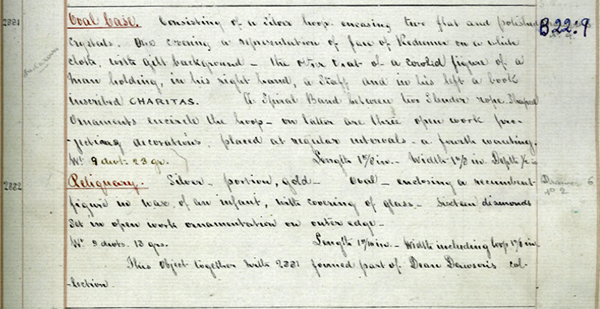 2881 Oval Case. Consisting of a silver hoop encasing two flat and polished B22:9
crystals. One covering a representation of face of Redeemer on a white
cloth, with gilt background – the other that of a corded figure of a
man holding, in his right hand, a staff and in his left a book
inscribed CHARITAS. A Spiral Band between two slender rope shaped
ornaments encircle the hoop – on latter are three open work
decorations placed at regular intervals – a fourth wanting.
Wt 9 dwts. 23 grs. Length in. – Width in. Depth in
2882 Reliquary. Silver – portion, gold – Oval – enclosing a recumbent Drawer 6
figure in wax, of an infant, with covering of glass – Sixteen diamonds No 2
set in open work ornamentation on outer edge –
Wt 9 dwts. 13 grs. Length in. – Width including loop in
This object together with 2881 formed part of Dean Dawson's col-
lection.